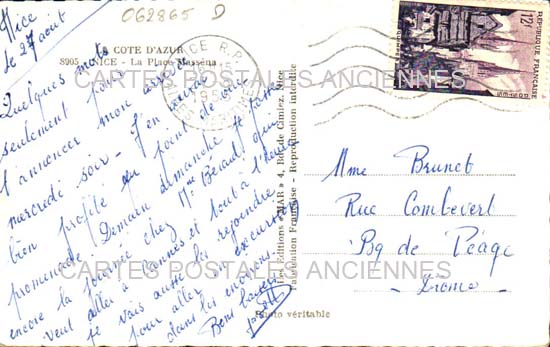 062865 D
Nice
le 27 août
LA COTE D'AZUR
8905 NICE - La Place Masséna
Quelques mots
seulement pour
t'annoncer mon arrivée
mercredi soir - J'en aurai
bien profité au point de vue
promenade. Demain dimanche je passe
encore la journée chez Mme Béraud qui
veut aller à Cannes et tout à l'heure
je vais autre les rejoindre
pour aller excursionner
dans les environs
Bons baisers
Les Editions « MAR » 4, Bd de Cimiez, Nice
Fabrication Française - Reproduction interdite
Photo véritable
NICE R.P.
REPUBLIQUE FRANÇAISE
12F
QUIMPER
Mme Brunet
Rue Combevert
Bg de Péage
- Drome -
CARTES POSTALES ANCIENNES
CARTES POSTALES ANCIENNES